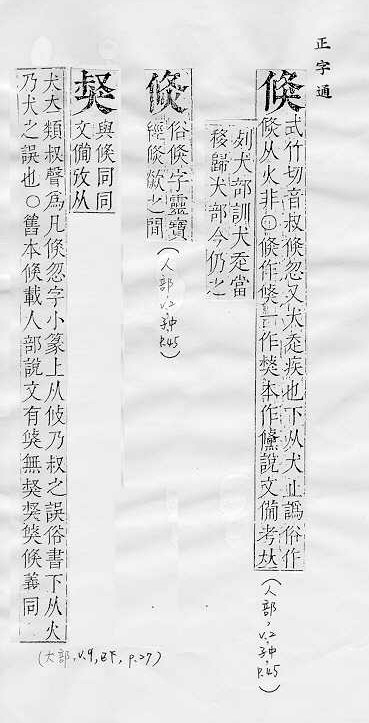 正字通
倏
式竹切音叔倏忽又犬走疾也下从犬止譌俗作
倏从火非○倏作㷀一作焂本作儵說文備考夶
列犬部訓犬走當
移歸犬部今仍之
(人部,V.2,子中 P.45)
倐
俗倏字靈寶
經倏歘之間
(人部 V.2 子中 P.45)
與倏同同
文備攷从
犬大類叔聲為凡倏忽字小篆上从伎乃叔之誤俗書下从火
乃犬之誤也○舊本倏載人部說文有
無
倏義同
(犬部,V.9,巳下,p.27)